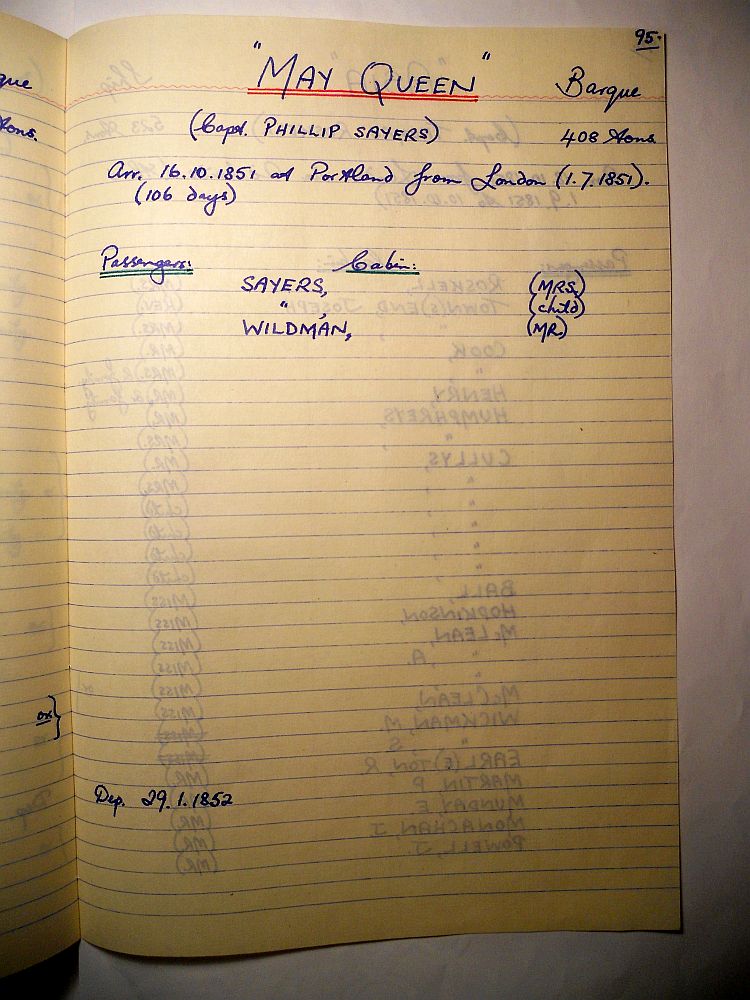 95.
"MAY QUEEN" Barque
(Capt. PHILLIP SAYERS) 408 tons
Arr. 16.10.1851 at Portland from London (1.7.1851).
(106 days)
Passengers: Cabin:
SAYERS, (MRS.)
" , (child)
WILDMAN, (MR.)
or}
Dep. 29.1.1852